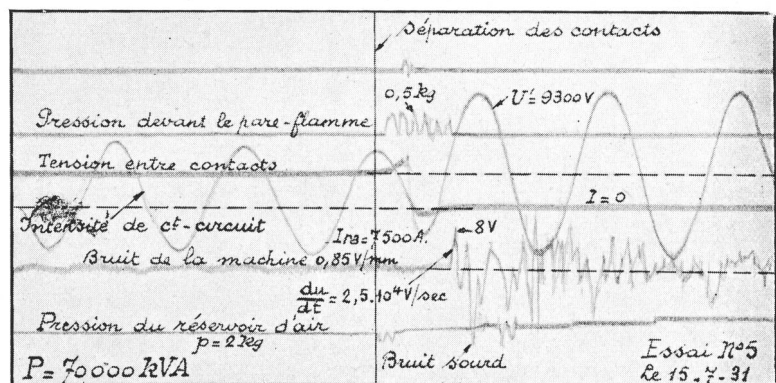 Séparation des contacts
0,5 kg
U'=9300V
Pression devant le pare-flamme
Tension entre contacts
I=0
Intensité de ct-circuit
8V
Bruit de la machine 0,85V/mm
du/dt = 2,5.10⁴V/sec
Pression du réservoir d'air
p=2kg
Bruit sourd
P=70000 kVA
Essai N°5
Le 15.7-31